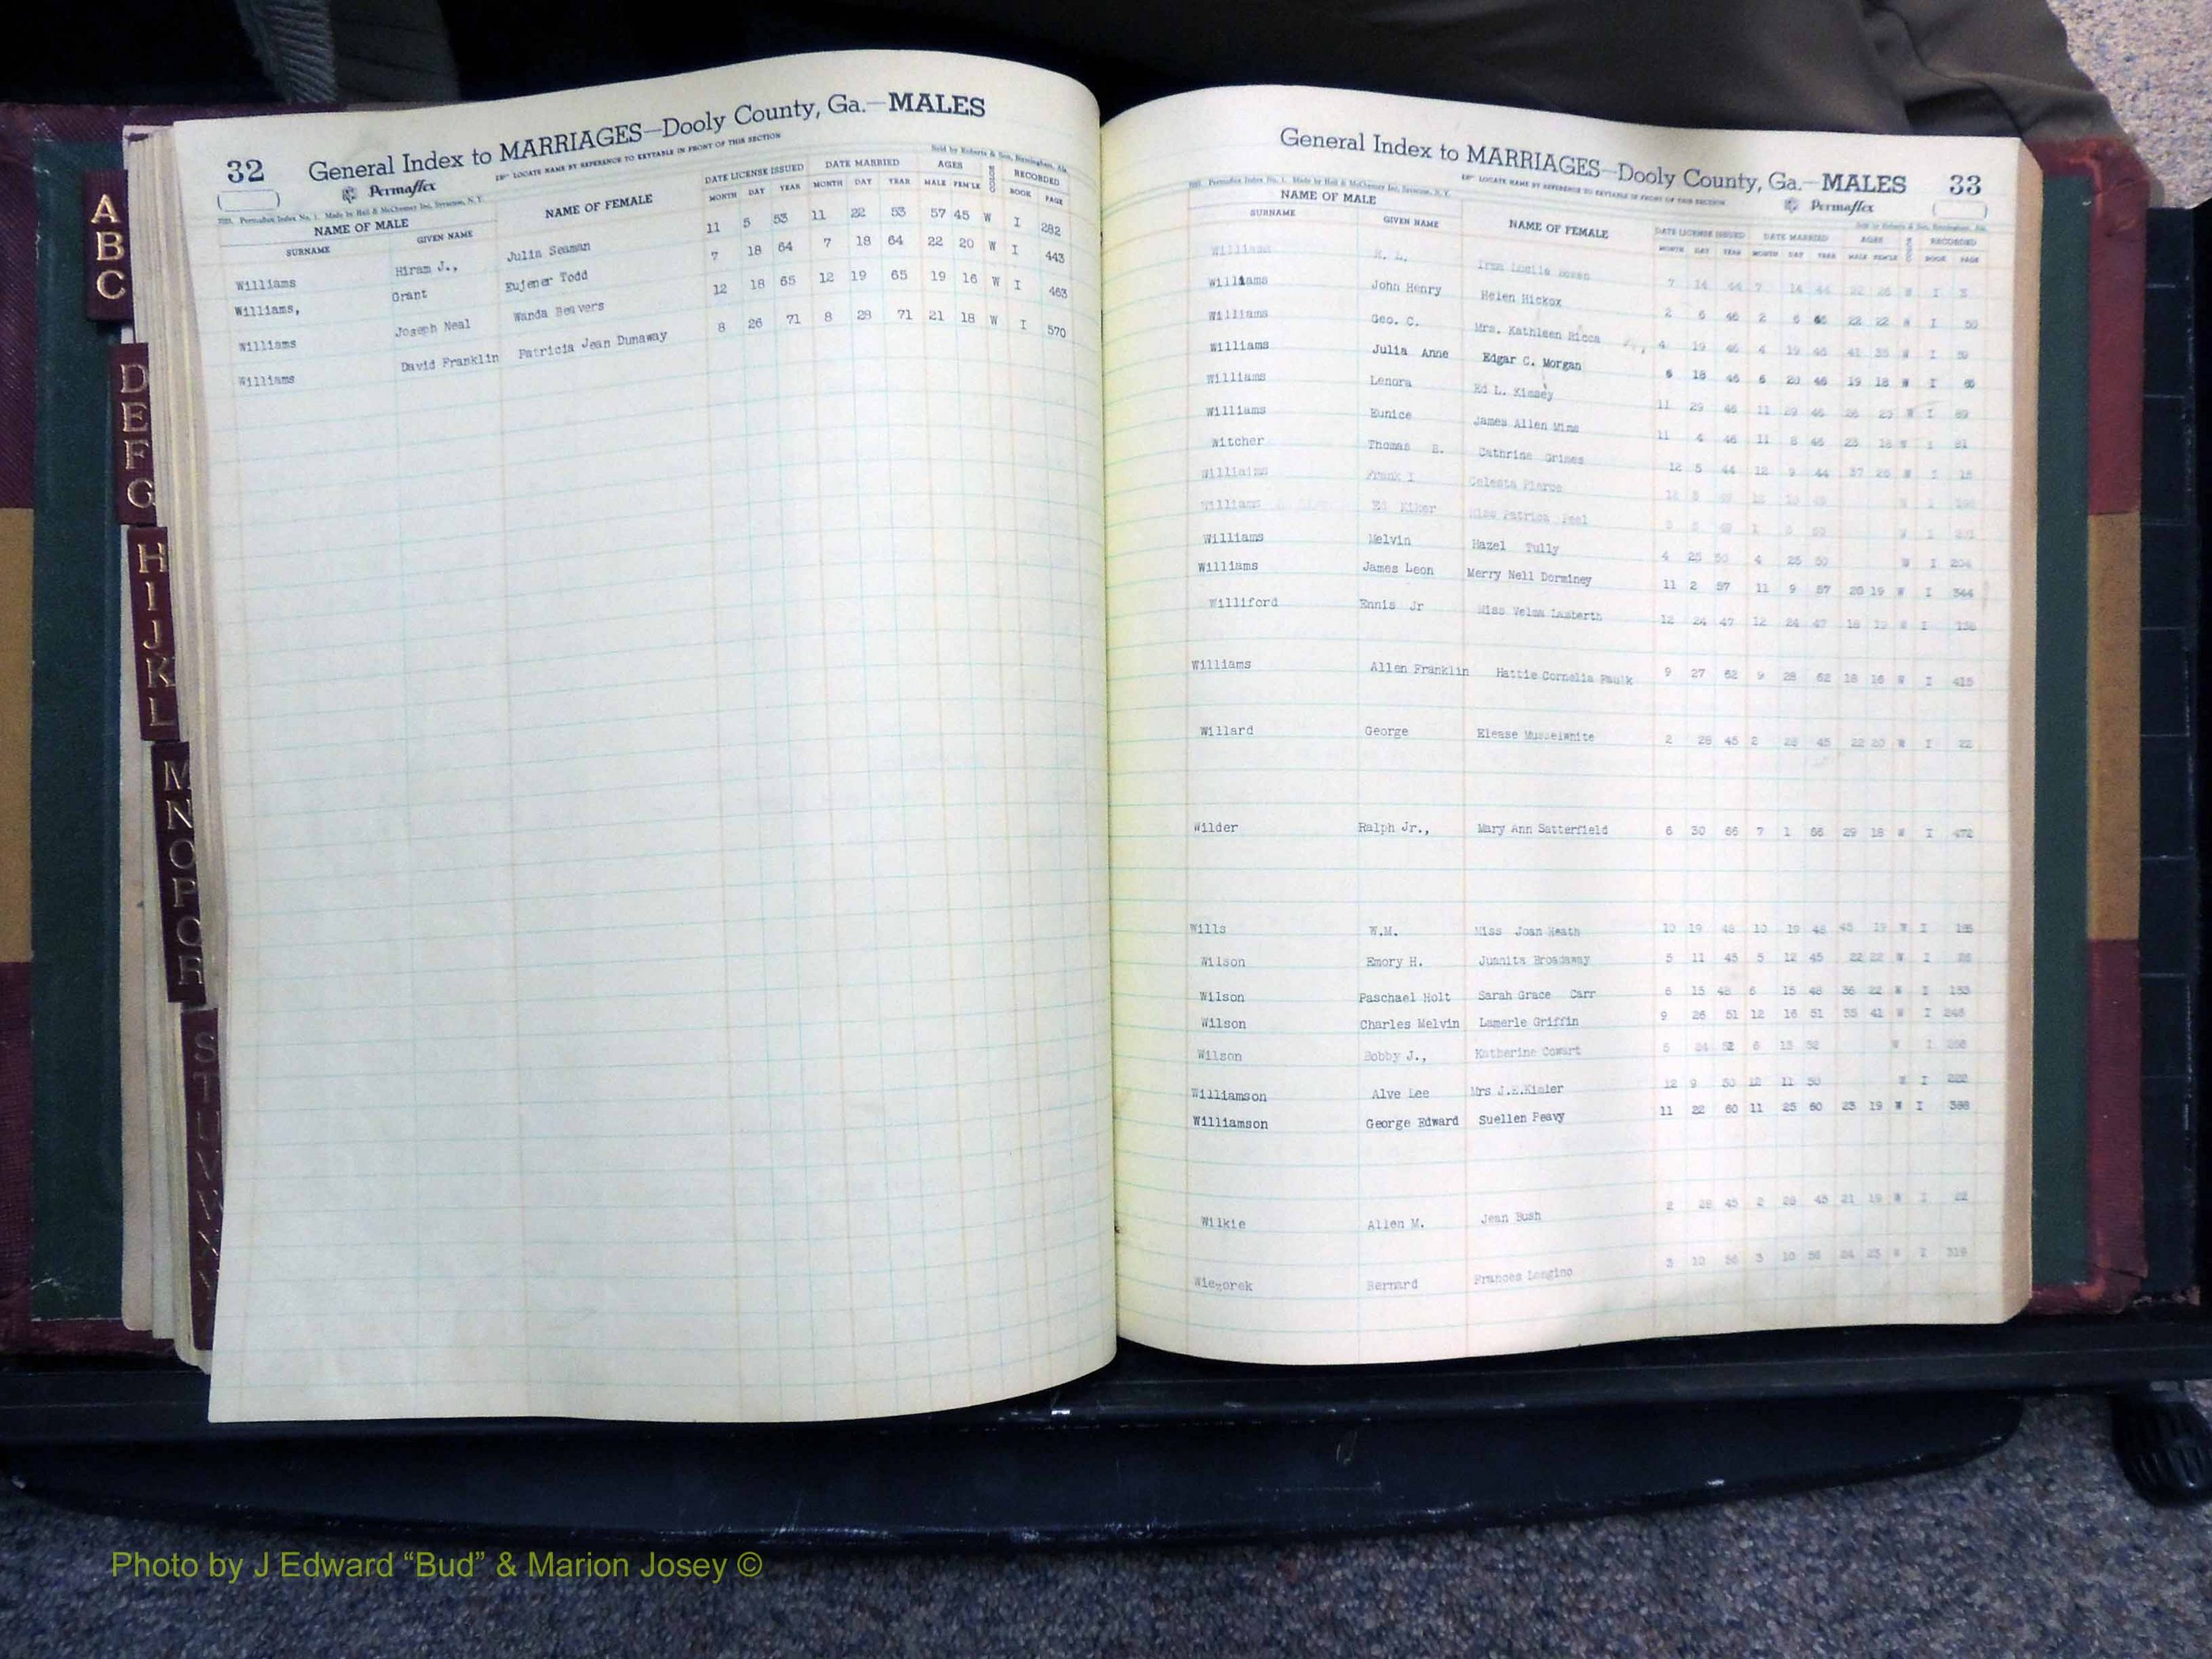 32 General Index to MARRIAGES—Dooly County, Ga.—MALES
Permaflex LOCATE NAME BY REFERENCE TO KEYTABLE IN FRONT OF THIS SECTION
Sold by Roberts & Son, Birmingham, Ala.
Permaflex Index No. 1. Made by Hall & McChesney Inc, Syracuse, N. Y.
NAME OF MALE NAME OF FEMALE DATE LICENSE ISSUED DATE MARRIED AGES COLOR RECORDED
SURNAME GIVEN NAME MONTH DAY YEAR MONTH DAY YEAR MALE FEM'LE BOOK PAGE
Williams Hiram J., Julia Seaman 11 5 53 11 22 53 57 45 W I 282
Williams, Grant Eujener Todd 7 18 64 7 18 64 22 20 W I 443
Williams Joseph Neal Wanda Beavers 12 18 65 12 19 65 19 16 W I 463
Williams David Franklin Patricia Jean Dunaway 8 26 71 8 28 71 21 18 W I 570
A
B
C
D
E
F
G
H
I
J
K
L
M
N
O
P
Q
R
S
T
U
V
W
X
General Index to MARRIAGES—Dooly County, Ga.—MALES 33
LOCATE NAME BY REFERENCE TO KEYTABLE IN FRONT OF THIS SECTION Permaflex
Permaflex Index No. 1. Made by Hall & McChesney Inc, Syracuse, N. Y.
Sold by Roberts & Son, Birmingham, Ala.
NAME OF MALE NAME OF FEMALE DATE LICENSE ISSUED DATE MARRIED AGES COLOR RECORDED
SURNAME GIVEN NAME MONTH DAY YEAR MONTH DAY YEAR MALE FEM'LE BOOK PAGE
Williams R. L. Irma Lucile 7 14 44 7 14 44 22 26 W I 3
Williams John Henry Helen Hickox 2 6 46 2 6 46 22 22 W I 50
Williams Geo. C. Mrs. Kathleen Ricca 4 19 46 4 19 46 41 35 W I 59
Williams Julia Anne Edgar C. Morgan 6 18 46 6 20 46 19 18 W I
Williams Lenora Ed L. Kimsey 11 29 46 11 29 46 W I 89
Williams Eunice James Allen Mims 11 4 46 11 8 46 23 18 W I 81
Witcher Thomas B. Cathrine Grimes 12 5 44 12 9 44 37 26 W I 18
Williaims Frank I Celesta Pierce
Williams Ed Kiker Miss Patrica Peel
Williams Melvin Hazel Tully 4 25 50 4 25 50 W I 204
Williams James Leon Merry Nell Dorminey 11 2 57 11 9 57 20 19 W I 344
Williford Ennis Jr Miss Velma Lamberth 12 24 47 12 24 47 18 19 W I
Williams Allen Franklin Hattie Cornelia Paulk 9 27 62 9 28 62 18 16 W I 415
Willard George Elease Musselwhite 2 28 45 2 28 45 22 20 W I 22
Wilder Ralph Jr., Mary Ann Satterfield 6 30 66 7 1 66 29 18 W I 472
Wills W.M. Miss Joan Heath 10 19 48 10 19 48 45 19 W I
Wilson Emory H. Juanita Broadaway 5 11 45 5 12 45 22 22 W I 26
Wilson Paschael Holt Sarah Grace Carr 6 15 48 6 15 48 36 22 W I 153
Wilson Charles Melvin Lamerle Griffin 9 26 51 12 16 51 35 41 W I 246
Wilson Bobby J., Katherine Cowart 5 24 52 6 13 52 W I
Williamson Alve Lee Mrs J.E.Kimler 12 9 50 12 11 50 W I 222
Williamson George Edward Suellen Peavy 11 22 60 11 25 60 23 19 W I 388
Wilkie Allen M. Jean Bush 2 28 45 2 28 45 21 19 W I 22
Wiezorek Bernard Frances Longino 3 10 56 3 10 56 24 23 W I 319
Photo by J Edward “Bud” & Marion Josey ©